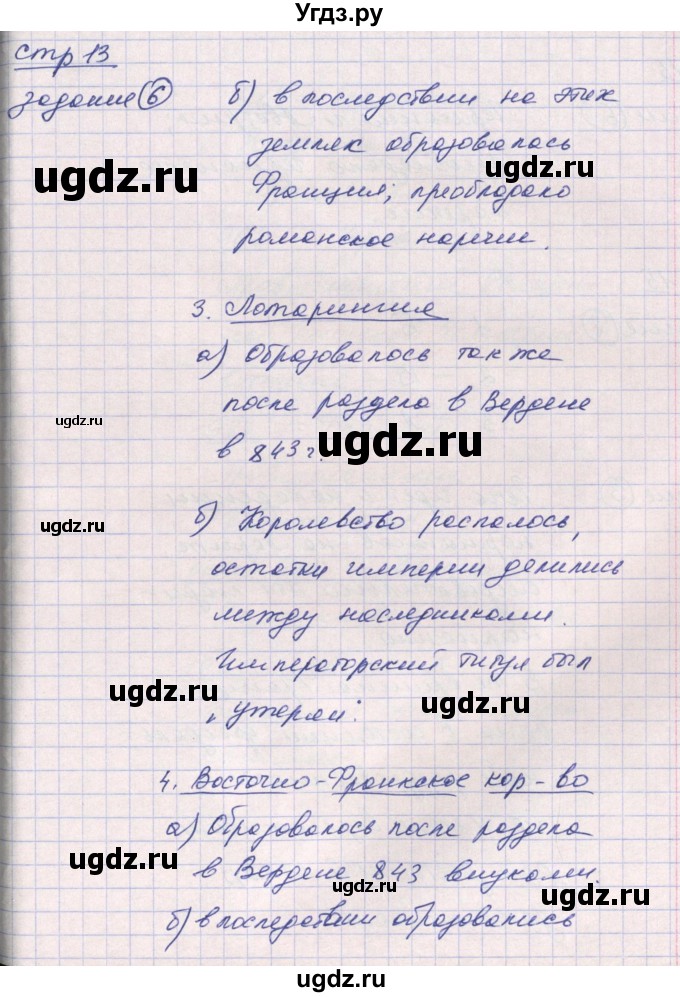 Угдз.ру
стр 13
задание 6
б) в последствии на этих
землях образовалась
Франция; преобладало
романское наречии.
3. Лотарингия
а) Образовалось так же
после раздела в Вердене
в 843 г.
б) Королевство распалось,
остатки империи делились
между наследниками.
Императорский титул был
"утерян".
4. Восточно-Франкское кор-во
а) Образовалось после раздела
в Вердене 843 внуками.
б) в последствии образовались
ugdz.ru
ugdz.ru
ugdz.ru
ugdz.ru
ugdz.ru
ugdz.ru
ugdz.ru
ugdz.ru
ugdz.ru
ugdz.ru
ugdz.ru
ugdz.ru